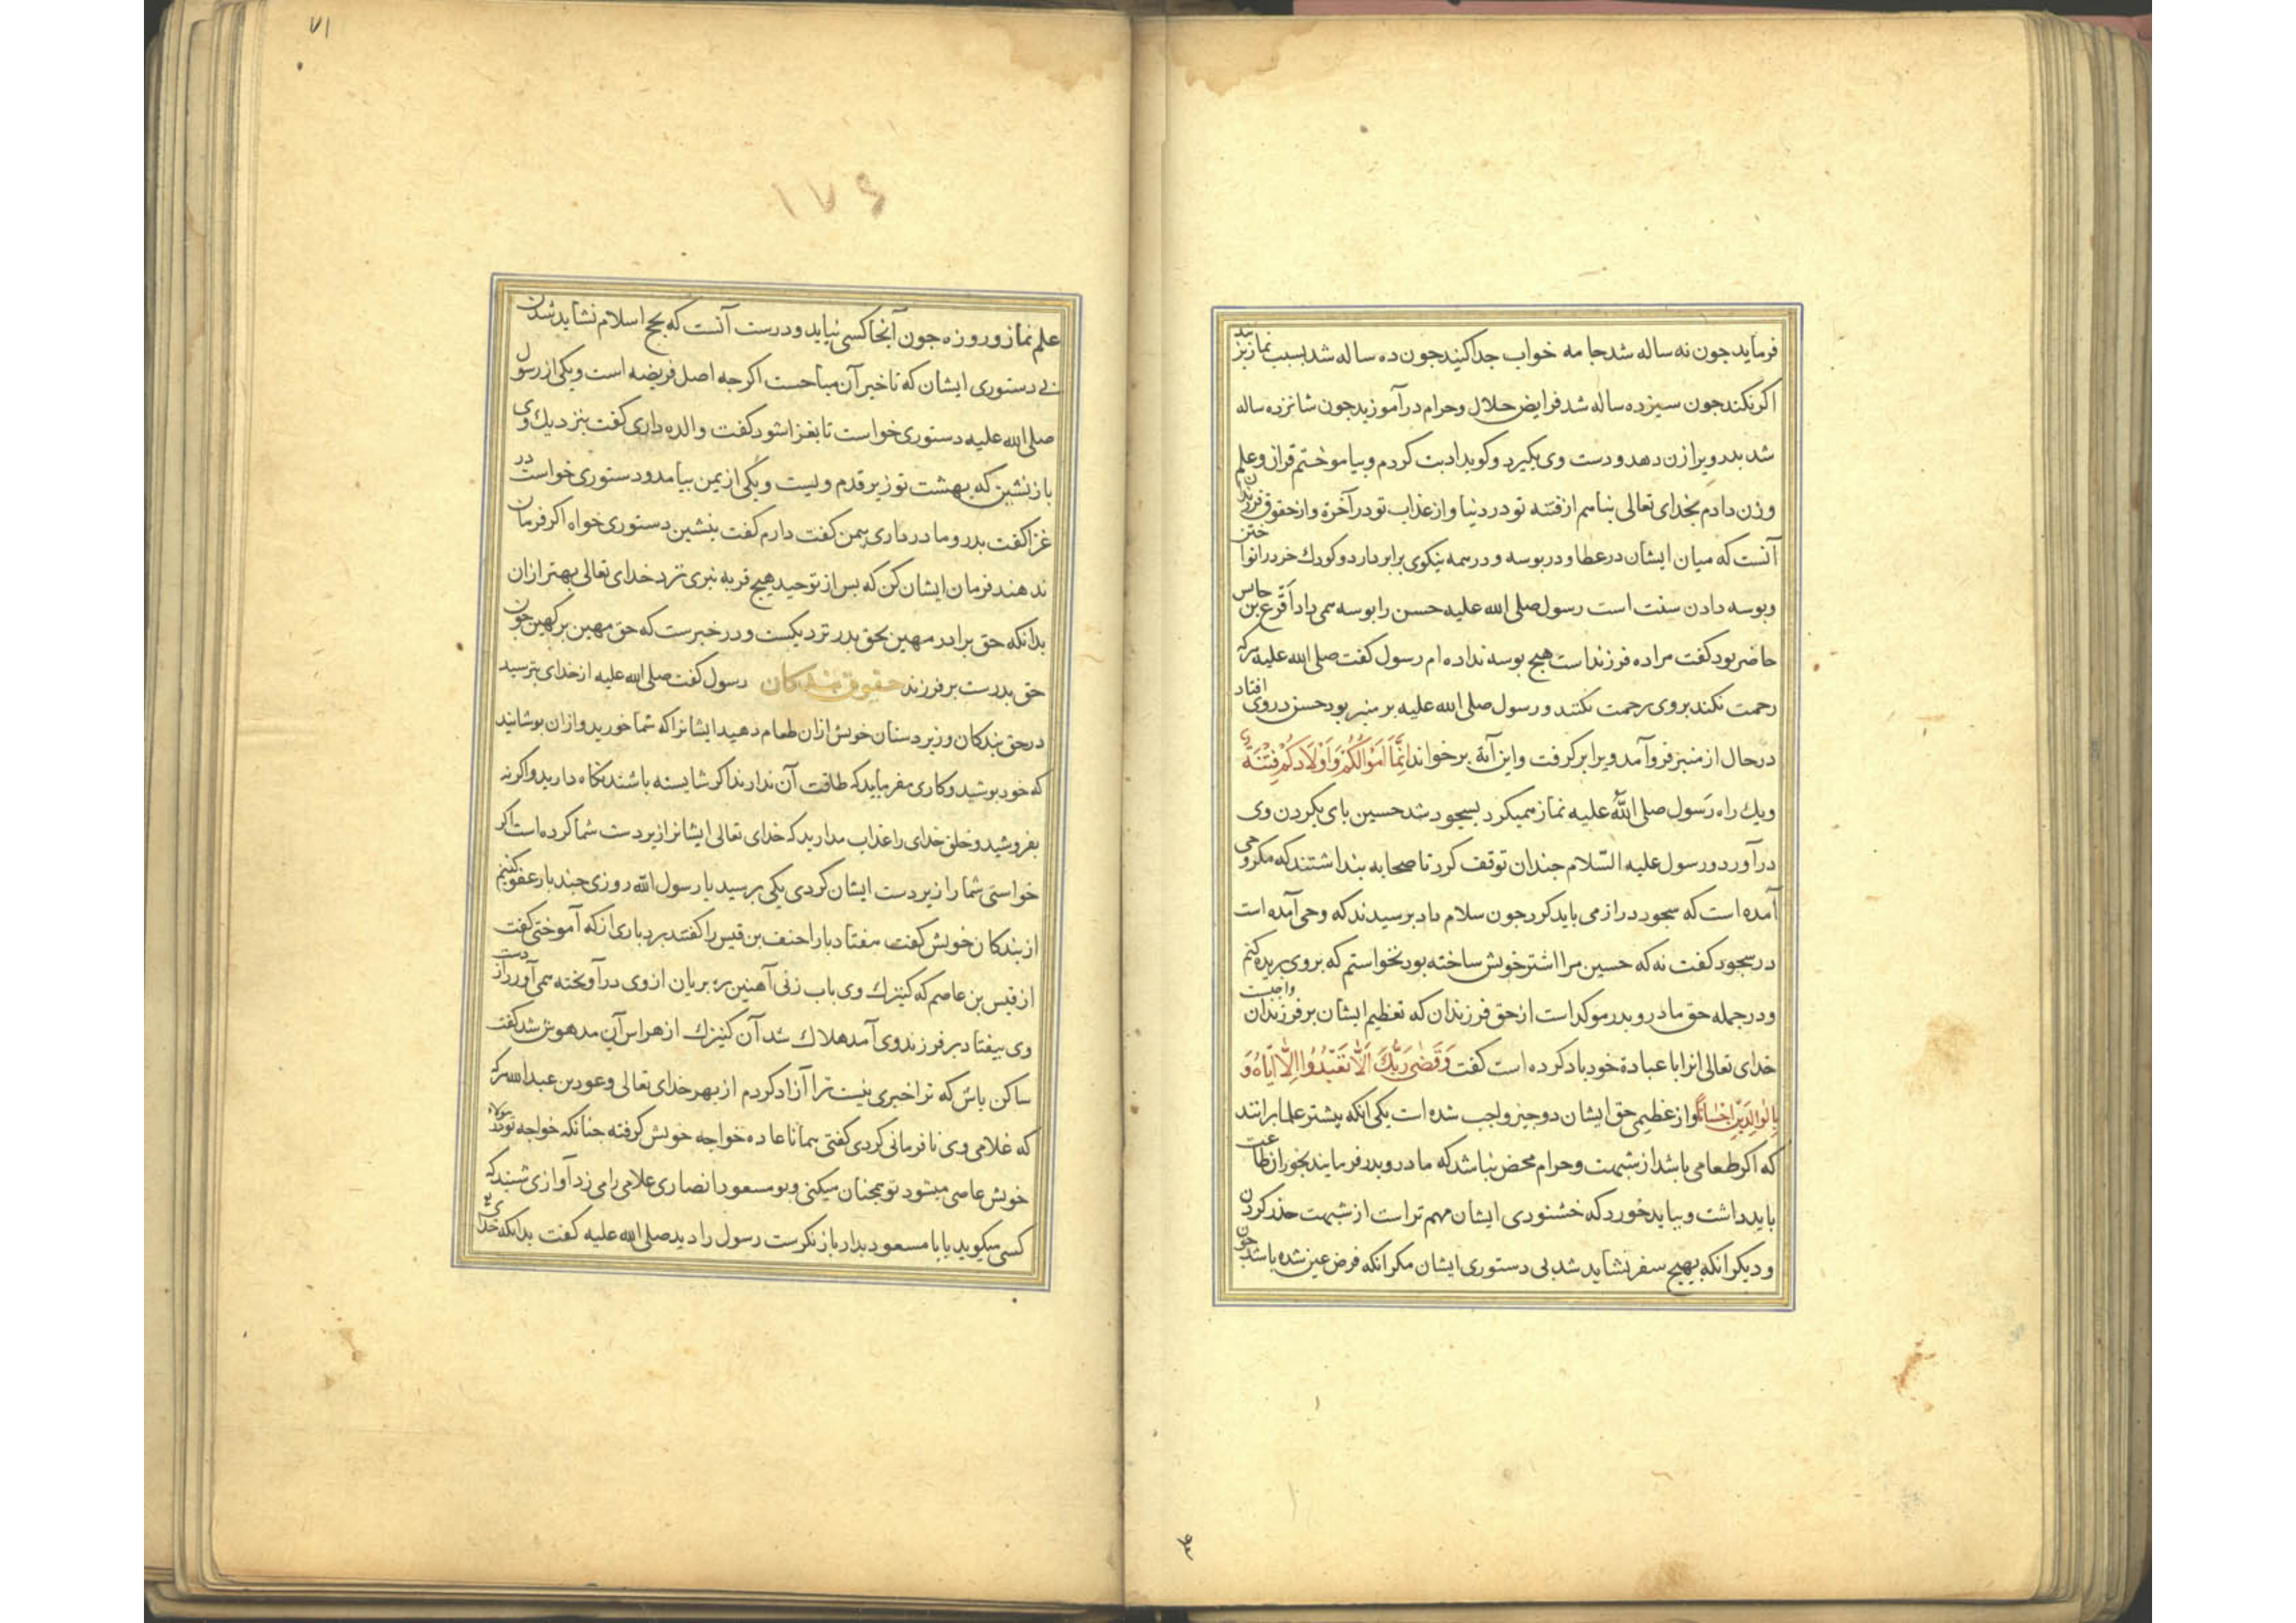 فرماید جون نه ساله شد جامه خواب جدا کنید جون ده ساله شد بسبب نماز بزنید
اکر نکند جون سیزده ساله شد فرایض حلال و حرام در آموزید جون شانزده ساله
شد بدر ویرا زن دهد و دست وی بکیرد و کوید ادبت کردم و بیاموختم قرآن و علم
و زن دادم بخدای تعالی بناهم از فتنه تو در دنیا و از عذاب تو در آخرة و از حقوق فرزندان
آنست که میان ایشان در عطا و در بوسه و در همه نیکوی برابر دارد و کودك خرد را نواختن
و بوسه دادن سنت است رسول صلی الله علیه حسن را بوسه می داد اقرع بن حابس
حاضر بود کفت مرا ده فرزند است هیج بوسه نداده ام رسول کفت صلی الله علیه هرکه
رحمت نکند بروی رحمت نکنند و رسول صلی الله علیه بر منبر بود حسن در روی افتاد
در حال از منبر فرو آمد و یرا برکرفت و این آیة برخواند اِنَّمَا اَمْوَالُكُمْ وَاَوْلَادُكُمْ فِتْنَةٌ
ویك راه رسول صلی الله علیه نماز همیکرد بسجود شد حسین بای بکردن وی
در آورد و رسول علیه السّلام جندان توقف کرد تا صحابه بنداشتند که مکر وحی
آمده است که سجود دراز می باید کرد جون سلام داد برسیدند که وحی آمده است
در سجود کفت نه که حسین مرا اشتر خویش ساخته بود نخواستم که بروی بریده کنم
و در جمله حق مادر و بدر موکد است از حق فرزندان که تعظیم ایشان بر فرزندان واجبست
خدای تعالی انرا با عبادة خود یاد کرده است کفت وَقَضَى رَبُّكَ اَلَّا تَعْبُدُوا اِلَّا اِيَّاهُ وَ
بِالْوَالِدَيْنِ اِحْسَانًا و از عظیمی حق ایشان دو جیز واجب شده است یکی آنکه بیشتر علما برانند
که اکر طعامی باشد از شبهت و حرام محض نباشد که مادر و بدر فرمایند بخور ان طاعت
باید داشت و بباید خورد که خشنودی ایشان مهم تر است از شبهت حذر کردن
و دیکر انکه بهیج سفر نشاید شد بی دستوری ایشان مکر انکه فرض عین شده باشد جون
۷۱
۱۷۶
علم نماز و روزه جون آنجا کسی نیابد و درست آنست که بحج اسلام نشاید شدن
بی دستوری ایشان که تاخیر آن مباحست اکرجه اصل فریضه است و یکی از رسول
صلی الله علیه دستوری خواست تا بغزا شود کفت والده داری کفت بنزدیك وی
باز نشین که بهشت تو زیر قدم ویست و یکی از یمن بیامد و دستوری خواست در
غزا کفت بدر و مادر داری بیمن کفت دارم کفت بنشین دستوری خواه اکر فرمان
ندهند فرمان ایشان کن که بس از توحید هیج قربه نبری نزد خدای تعالی بهتر از ان
بدانکه حق برادر مهین بحق بدر نزدیکست و در خبرست که حق مهین بر کهین جون
حق بدرست بر فرزند حقوق بندکان رسول کفت صلی الله علیه از خدای بترسید
در حق بندکان و زیردستان خویش از ان طعام دهید ایشانرا که شما خورید و از ان بوشانید
که خود بوشید و کاری مفرمایید که طاقت آن ندارند اکر شایسته باشند نکاه دارید و اکر نه
بفروشید و خلق خدای را عذاب مدارید که خدای تعالی ایشانرا زیردست شما کرده است اکر
خواستی شما را زیردست ایشان کردی یکی برسید یا رسول الله روزی جند بار عفو کنیم
از بندکان خویش کفت هفتاد بار احنف بن قیس را کفتند بردباری از که آموختی کفت
از قیس بن عاصم که کنیزك وی باب زنی آهنین بره بریان از وی در آویخته می آورد از دست
وی بیفتاد بر فرزند وی آمد هلاك شد آن کنیزك از هراس آن مدهوش شد کفت
ساکن باش که ترا خبری نیست ترا آزاد کردم از بهر خدای تعالی و عود بن عبدالله هرکه
که غلامی وی نافرمانی کردی کفتی همانا عاده خواجه خویش کرفته جنانکه خواجه تو در مولاء
خویش عاصی میشود تو همجنان میکنی و بو مسعود انصاری غلامی را می زد آوازی شنید که
کسی میکوید یا با مسعود بدار باز نکرست رسول را دید صلی الله علیه کفت بدانکه خدای